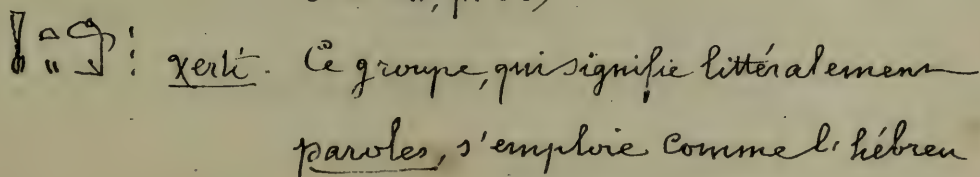 χerti. Ce groupe, qui signifie littéralement
paroles, s'emploie comme l'hébreu